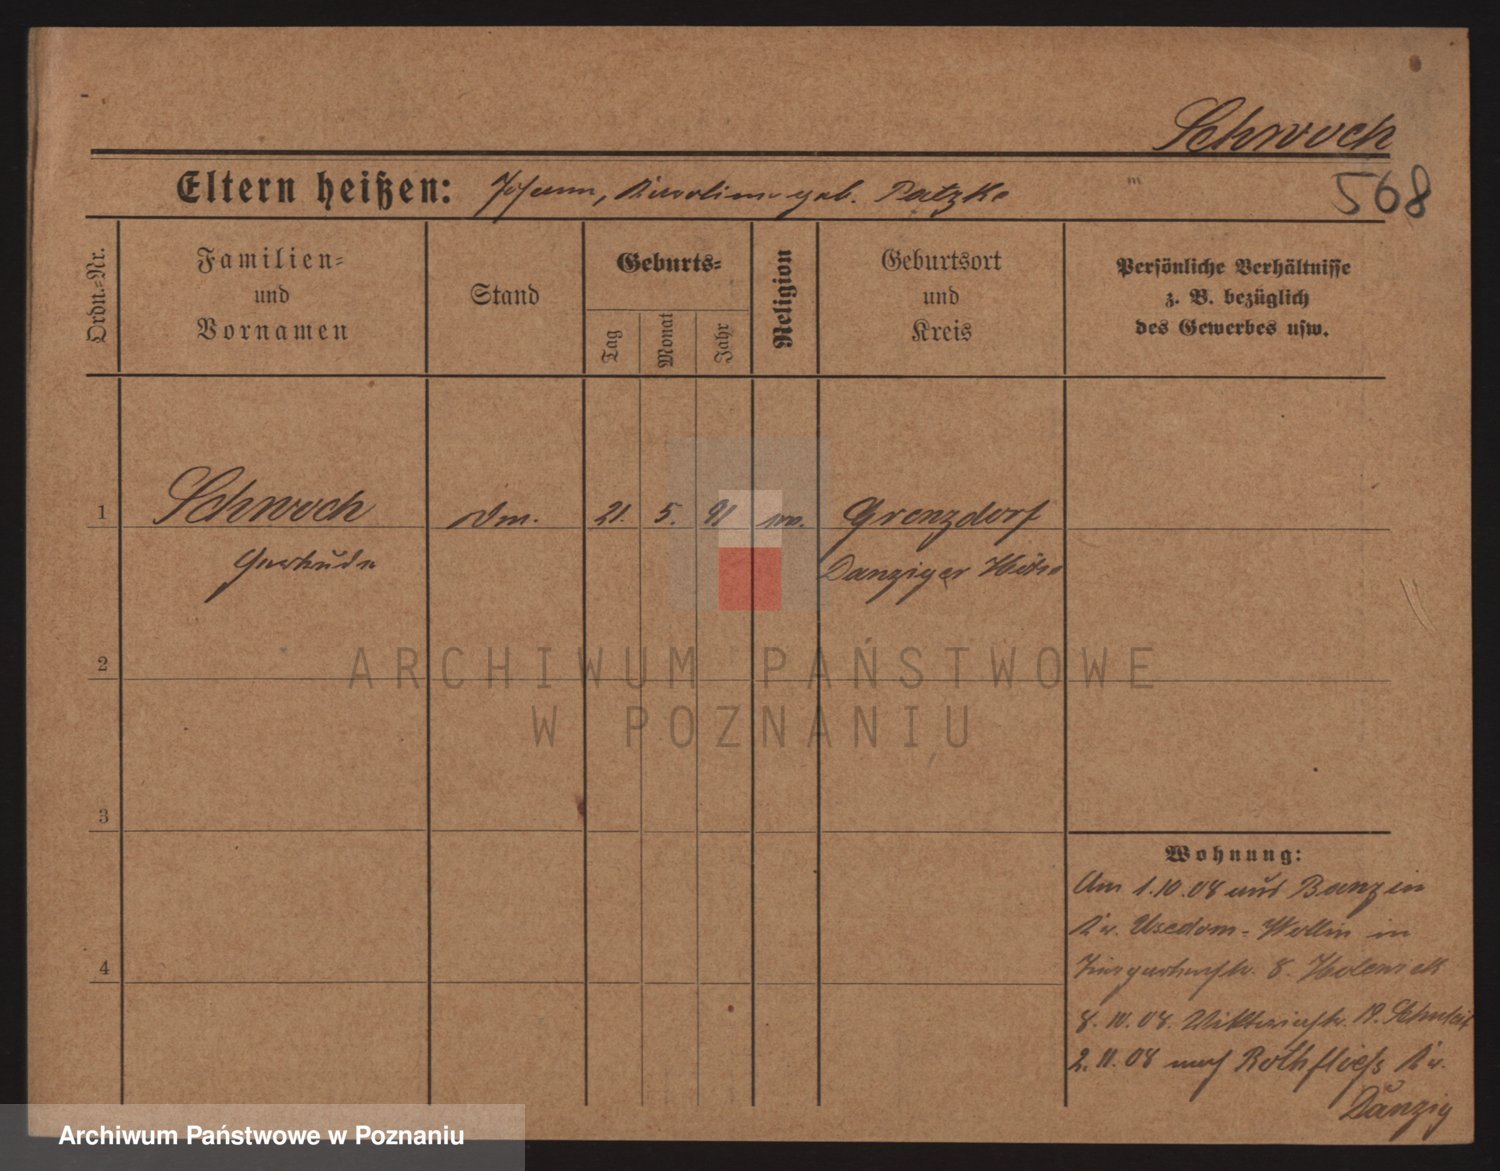 Schwoch
Eltern heißen: Johann, Karoline geb. Patzke
568
Ordn.-Nr.
Familien-
und
Vornamen
Stand
Geburts-
Tag
Monat
Jahr
Religion
Geburtsort
und
Kreis
Persönliche Verhältnisse
z. B. bezüglich
des Gewerbes usw.
1
Schwoch
Gertrude
21. 5. 91
Grenzdorf
Danziger Höhe
2
ARCHIWUM PAŃSTWOWE
W POZNANIU
3
4
Wohnung:
Am 1.10.08 aus Banzin
Kr. Usedom-Wollin in
Tiergartenstr. 8.
8.10.08. Viktoriastr. 19.
2.11.08 nach Rothfließ Kr.
Danzig
Archiwum Państwowe w Poznaniu